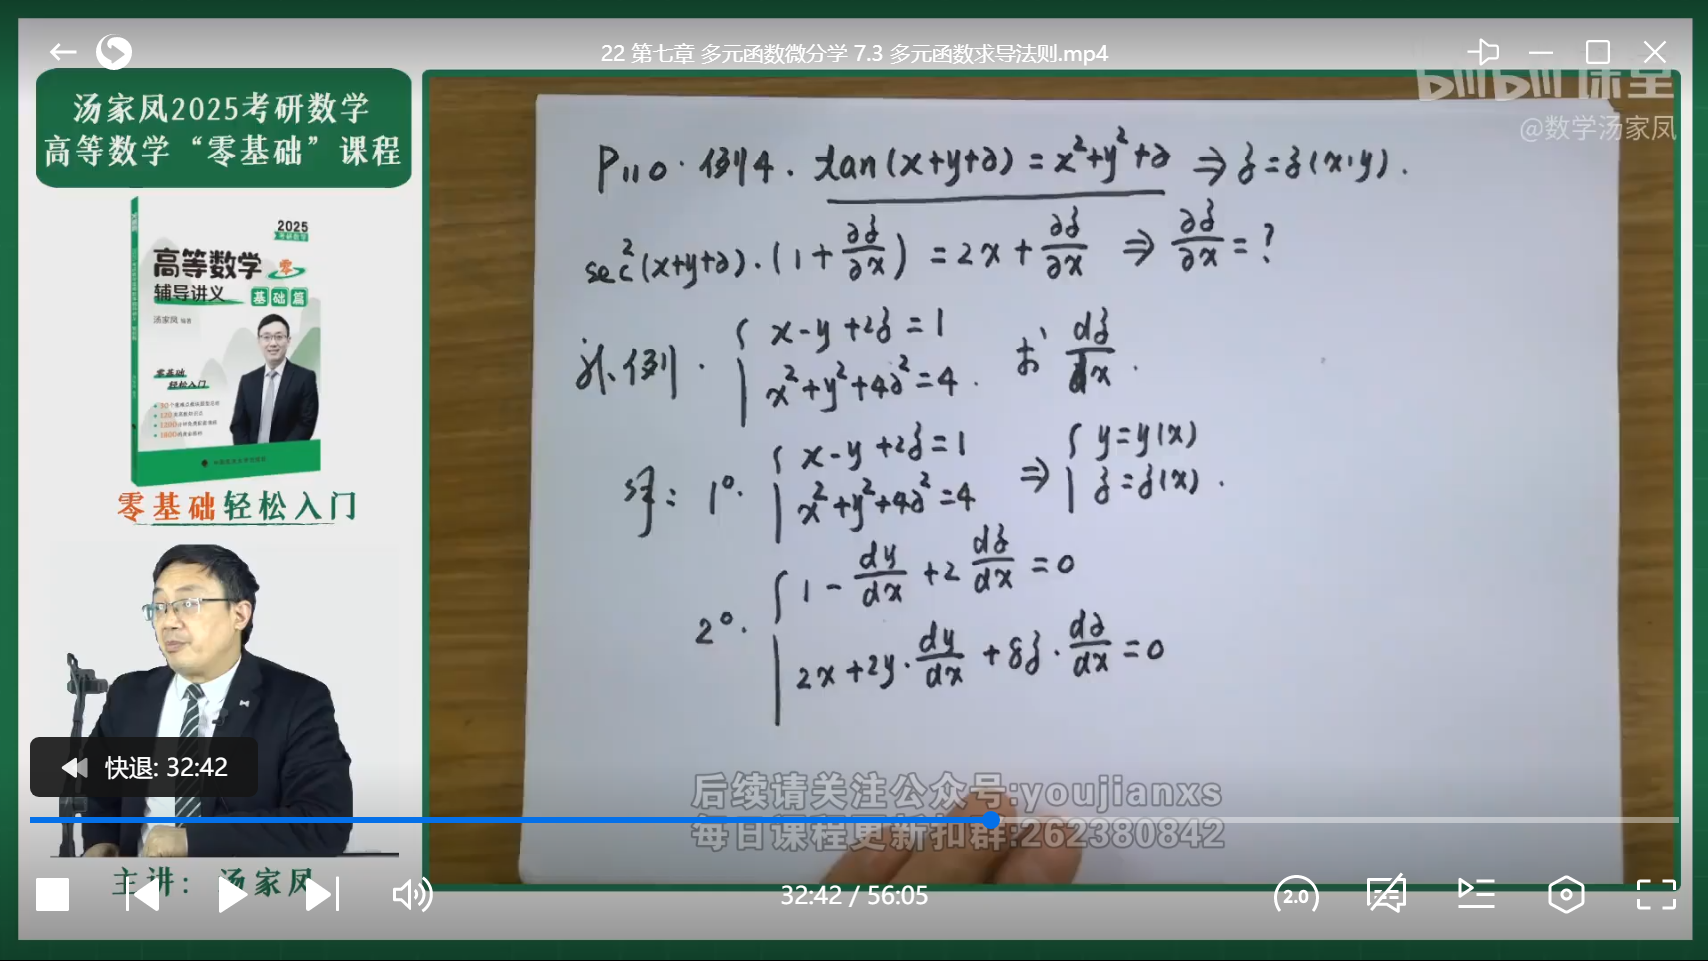 22 第七章 多元函数微分学 7.3 多元函数求导法则.mp4
汤家凤2025考研数学
高等数学“零基础”课程
bilibili课堂
@数学汤家凤
2025
高等数学 零
辅导讲义 基础篇
汤家凤
零基础
轻松入门
零基础轻松入门
P110. 例4. tan(x+y+z) = x²+y²+z ⇒ z = z(x,y).
sec²(x+y+z)·(1+∂z/∂x) = 2x+∂z/∂x ⇒ ∂z/∂x = ?
补例. { x-y+2z=1
x²+y²+4z²=4. 求 dz/dx.
解: 1°. { x-y+2z=1
x²+y²+4z²=4 ⇒ { y=y(x)
z=z(x).
2°. { 1-dy/dx+2dz/dx=0
2x+2y·dy/dx+8z·dz/dx=0
快退: 32:42
后续请关注公众号:youjianxs
每日课程更新扣群:262380842
主讲: 汤家凤
32:42 / 56:05
2.0